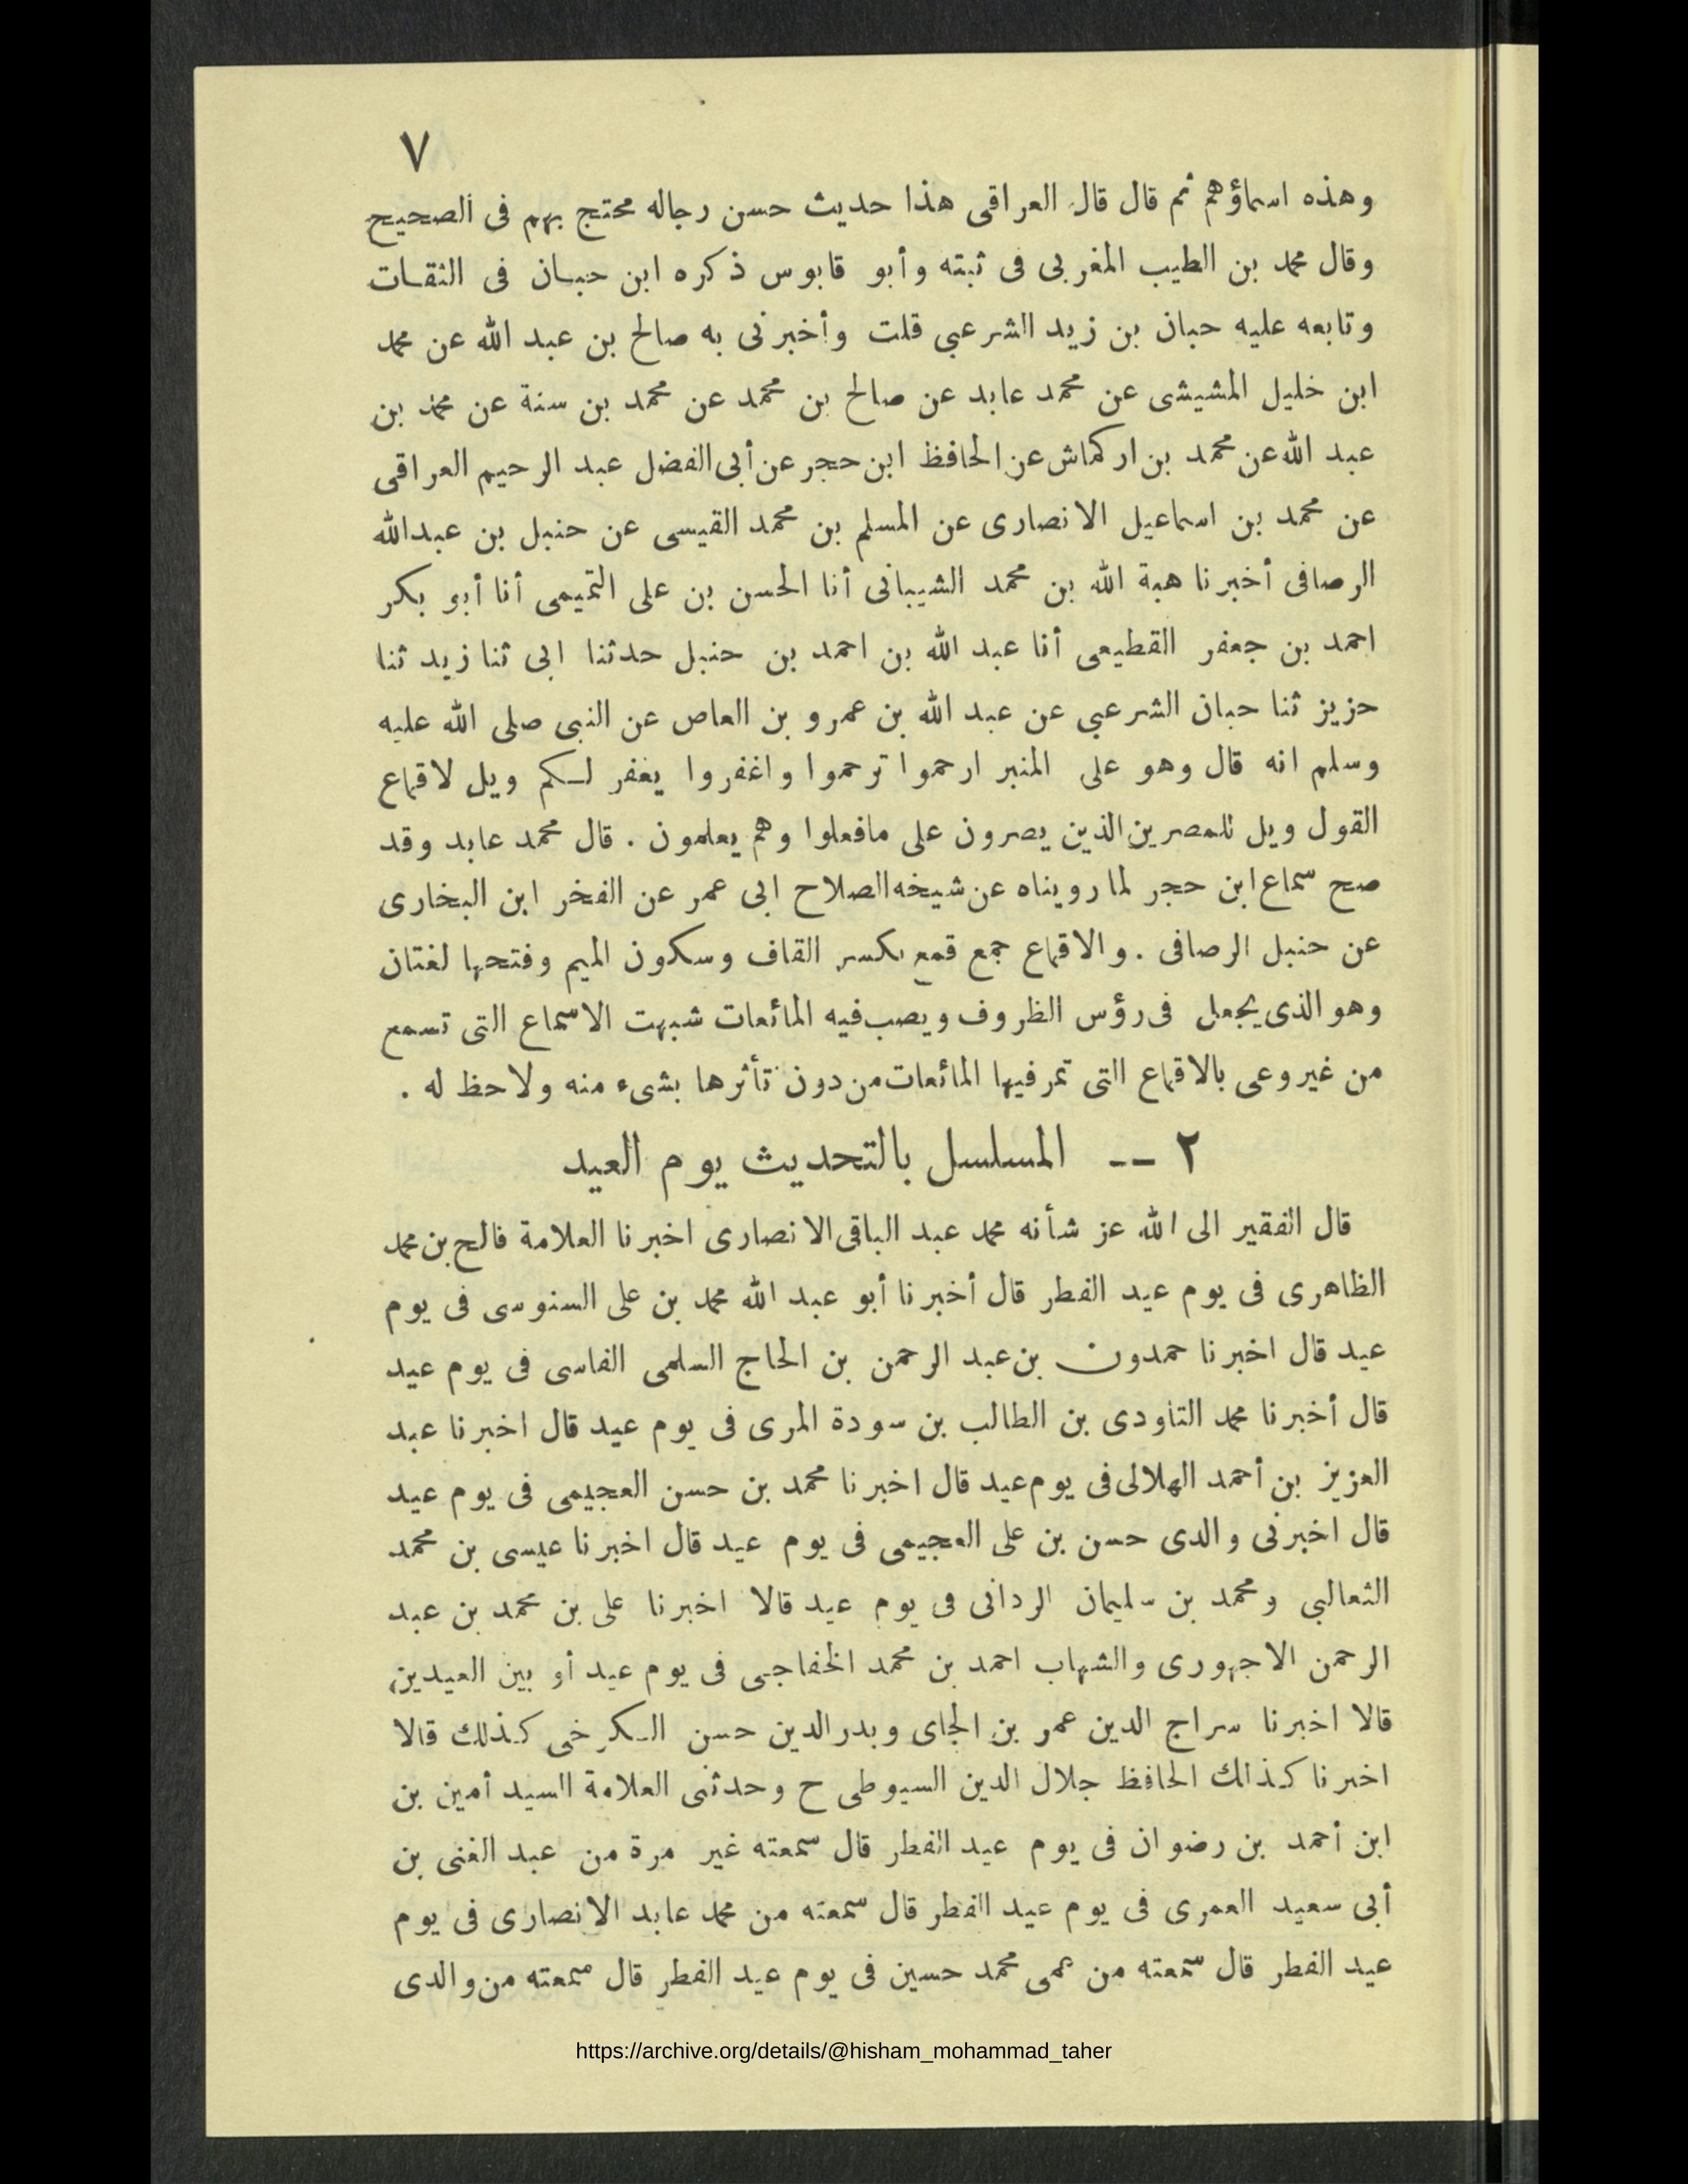 ٧
وهذه اسماؤهم ثم قال قال العراقى هذا حديث حسن رجاله محتج بهم فى الصحيح
وقال محمد بن الطيب المغربى فى ثبته وأبو قابوس ذكره ابن حبان فى الثقات
وتابعه عليه حبان بن زيد الشرعبي قلت وأخبرنى به صالح بن عبد الله عن محمد
ابن خليل المشيشى عن محمد عابد عن صالح بن محمد عن محمد بن سنة عن محمد بن
عبد الله عن محمد بن اركماش عن الحافظ ابن حجر عن أبى الفضل عبد الرحيم العراقى
عن محمد بن اسماعيل الانصارى عن المسلم بن محمد القيسى عن حنبل بن عبدالله
الرصافى أخبرنا هبة الله بن محمد الشيبانى أنا الحسن بن على التميمى أنا أبو بكر
احمد بن جعفر القطيعى أنا عبد الله بن احمد بن حنبل حدثنا ابى ثنا زيد ثنا
حزيز ثنا حبان الشرعبي عن عبد الله بن عمرو بن العاص عن النبى صلى الله عليه
وسلم انه قال وهو على المنبر ارحموا ترحموا واغفروا يغفر لكم ويل لاقماع
القول ويل للمصرين الذين يصرون على مافعلوا وهم يعلمون . قال محمد عابد وقد
صح سماع ابن حجر لما رويناه عن شيخه الصلاح ابى عمر عن الفخر ابن البخارى
عن حنبل الرصافى . والاقماع جمع قمع بكسر القاف وسكون الميم وفتحها لغتان
وهو الذى يجعل فى رؤس الظروف ويصب فيه المائعات شبهت الاسماع التى تسمع
من غير وعى بالاقماع التى تمر فيها المائعات من دون تأثرها بشىء منه ولاحظ له .
٢ -- المسلسل بالتحديث يوم العيد
قال الفقير الى الله عز شأنه محمد عبد الباقى الانصارى اخبرنا العلامة فالح بن محمد
الظاهرى فى يوم عيد الفطر قال أخبرنا أبو عبد الله محمد بن على السنوسى فى يوم
عيد قال اخبرنا حمدون بن عبد الرحمن بن الحاج السلمى الفاسى فى يوم عيد
قال أخبرنا محمد التاودى بن الطالب بن سودة المرى فى يوم عيد قال اخبرنا عبد
العزيز بن أحمد الهلالى فى يوم عيد قال اخبرنا محمد بن حسن العجيمى فى يوم عيد
قال اخبرنى والدى حسن بن على العجيمى فى يوم عيد قال اخبرنا عيسى بن محمد
الثعالبي ومحمد بن سليمان الردانى فى يوم عيد قالا اخبرنا على بن محمد بن عبد
الرحمن الاجهورى والشهاب احمد بن محمد الخفاجى فى يوم عيد أو بين العيدين
قالا اخبرنا سراج الدين عمر بن الجاى وبدر الدين حسن الكرخى كذلك قالا
اخبرنا كذلك الحافظ جلال الدين السيوطى ح وحدثنى العلامة السيد أمين بن
ابن أحمد بن رضوان فى يوم عيد الفطر قال سمعته غير مرة من عبد الغنى بن
أبى سعيد العمرى فى يوم عيد الفطر قال سمعته من محمد عابد الانصارى فى يوم
عيد الفطر قال سمعته من عمى محمد حسين فى يوم عيد الفطر قال سمعته من والدى
https://archive.org/details/@hisham_mohammad_taher